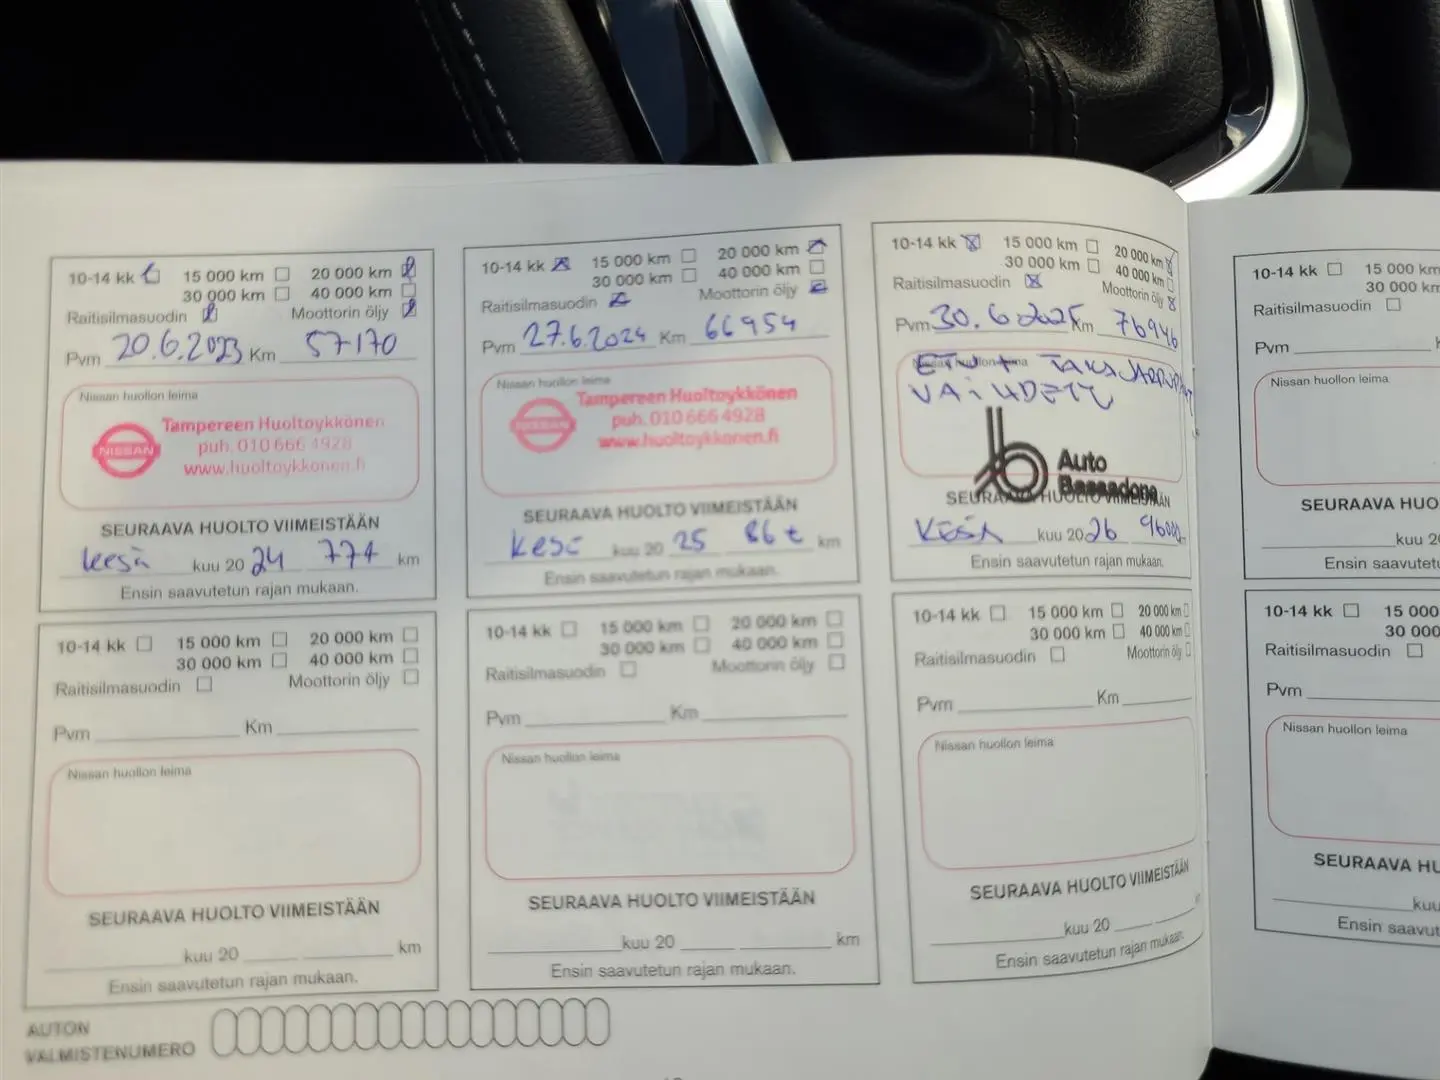 10-14 kk 15 000 km 20 000 km
30 000 km 40 000 km
Raitisilmasuodin Moottorin öljy
Pvm 20.6.2023 Km 57170
Nissan huollon leima
NISSAN
Tampereen Huoltoykkönen
puh. 010 666 4928
www.huoltoykkonen.fi
SEURAAVA HUOLTO VIIMEISTÄÄN
kesä kuu 20 24 77t km
Ensin saavutetun rajan mukaan.
10-14 kk 15 000 km 20 000 km
30 000 km 40 000 km
Raitisilmasuodin Moottorin öljy
Pvm 27.6.2024 Km 66954
Nissan huollon leima
NISSAN
Tampereen Huoltoykkönen
puh. 010 666 4928
www.huoltoykkonen.fi
SEURAAVA HUOLTO VIIMEISTÄÄN
kesä kuu 20 25 86t km
Ensin saavutetun rajan mukaan.
10-14 kk 15 000 km 20 000 km
30 000 km 40 000 km
Raitisilmasuodin Moottorin öljy
Pvm 30.6.2025 Km 76946
Nissan huollon leima
ETU + TAKAJARRUPALAT
VAIHDETTU
Auto
Bassadone
SEURAAVA HUOLTO VIIMEISTÄÄN
KESÄ kuu 20 26 96000
Ensin saavutetun rajan mukaan.
10-14 kk 15 000 km
30 000 km
Raitisilmasuodin
Pvm
Nissan huollon leima
SEURAAVA HUO
kuu 2
Ensin saavutet
10-14 kk 15 000 km 20 000 km
30 000 km 40 000 km
Raitisilmasuodin Moottorin öljy
Pvm Km
Nissan huollon leima
SEURAAVA HUOLTO VIIMEISTÄÄN
kuu 20 km
Ensin saavutetun rajan mukaan.
10-14 kk 15 000 km 20 000 km
30 000 km 40 000 km
Raitisilmasuodin Moottorin öljy
Pvm Km
Nissan huollon leima
SEURAAVA HUOLTO VIIMEISTÄÄN
kuu 20 km
Ensin saavutetun rajan mukaan.
10-14 kk 15 000 km 20 000 km
30 000 km 40 000 km
Raitisilmasuodin Moottorin öljy
Pvm Km
Nissan huollon leima
SEURAAVA HUOLTO VIIMEISTÄÄN
kuu 20
Ensin saavutetun rajan mukaan.
10-14 kk 15 000
30 000
Raitisilmasuodin
Pvm
Nissan huollon leima
SEURAAVA HU
kuu
Ensin saavut
AUTON
VALMISTENUMERO